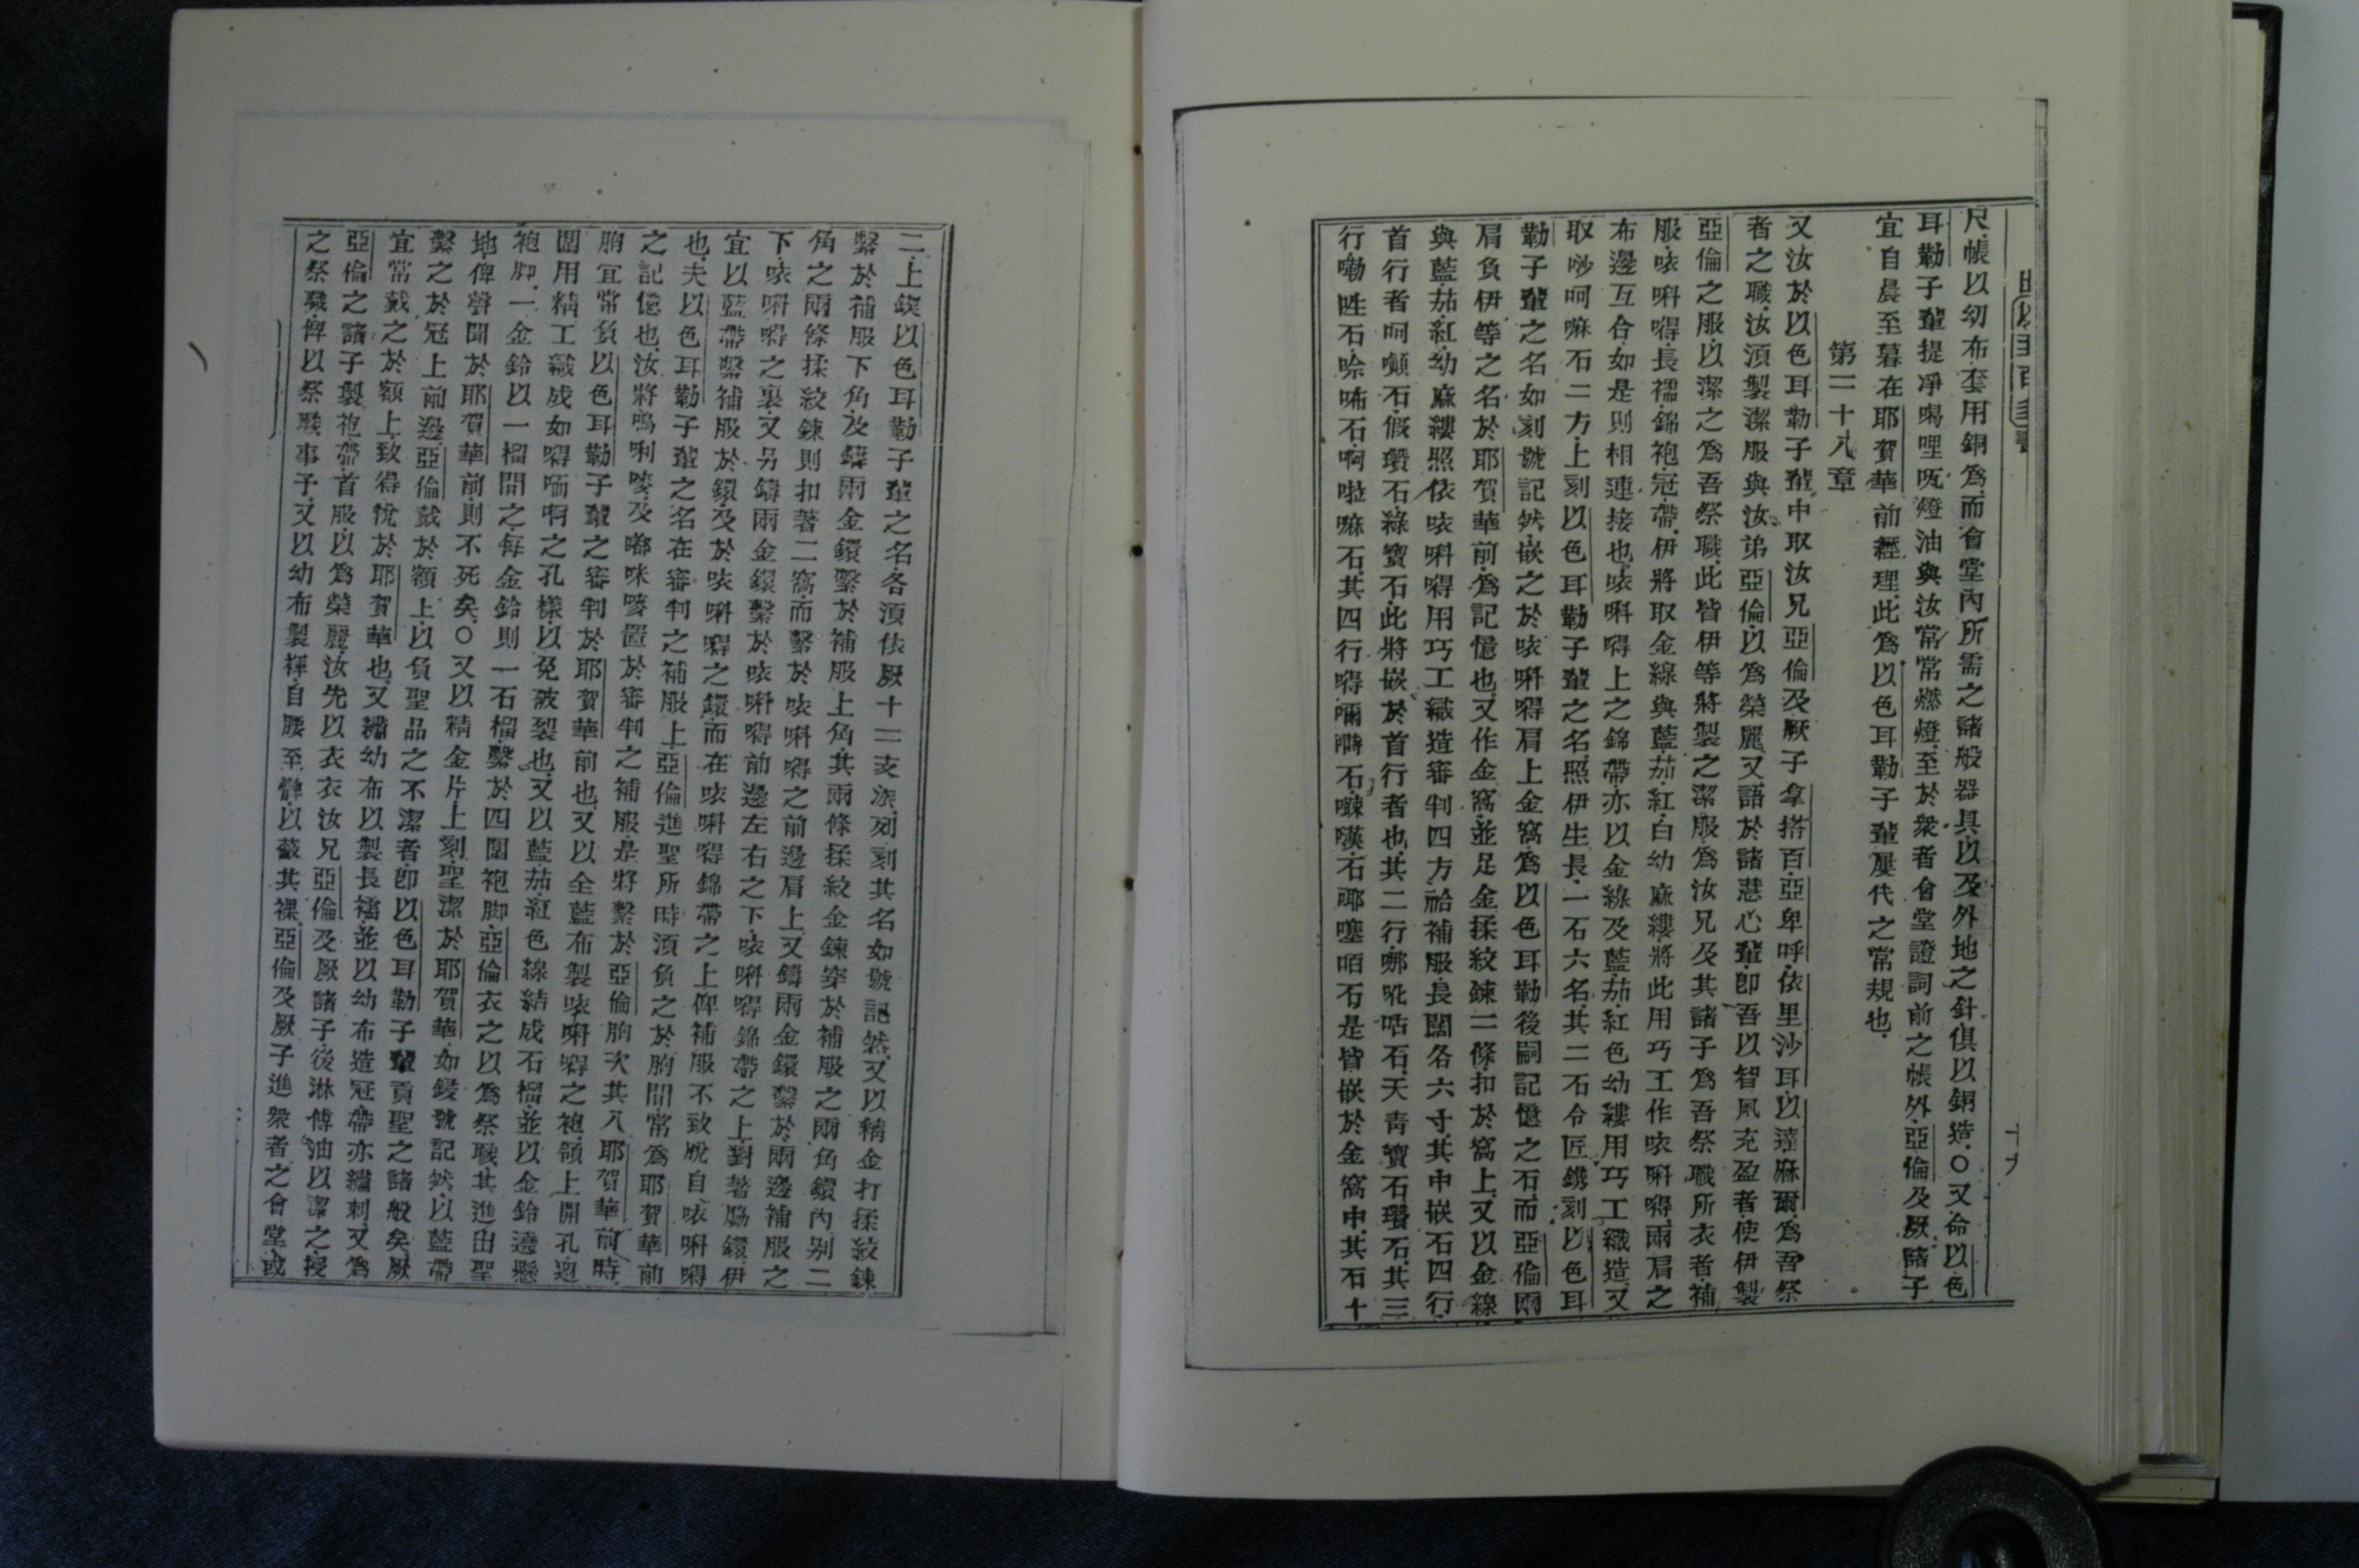 尺.帳以幼布套用銅爲.而會堂內所需之諸般器具.以及外地之針俱以銅造.○又命以色
耳勒子輩提凈喝哩𠵽燈油與汝常常燃燈.至於衆者會堂證詞前之帳外.亞倫及厥諸子
宜自晨至暮在耶賀華前經理.此爲以色耳勒子輩屢代之常規也.
第二十八章
又汝於以色耳勒子輩中取汝兄亞倫及厥子拿搭百.亞卑呼.依里沙耳.以達麻爾.爲吾祭
者之職.汝須製潔服與汝弟亞倫.以爲榮麗.又語於諸慧心輩.卽吾以智風充盈者.使伊製
亞倫之服.以潔之爲吾祭職.此皆伊等將製之潔服.爲汝兄及其諸子爲吾祭職所衣者.補
服.㕹唎嘚.長襦.錦袍.冠.帶.伊將取金線與藍.茄.紅.白幼麻縷.將此用巧工作㕹唎嘚.兩肩之
布邊互合.如是則相連接也.㕹唎嘚上之錦帶.亦以金線及藍.茄.紅色幼縷.用巧工織造.又
取吵呵嘛石二方.上刻以色耳勒子輩之名.照伊生長.一石六名.其二石令匠鐫刻以色耳
勒子輩之名如刻號記然.嵌之於㕹唎嘚肩上金窩.爲以色耳勒後嗣記憶之石.而亞倫兩
肩負伊等之名於耶賀華前.爲記憶也.又作金窩.並足金揉絞鍊二條扣於窩上.又以金線
與藍.茄.紅.幼麻縷.照依㕹唎嘚用巧工織造審判四方祫補服.長闊各六寸.其中嵌石四行.
首行者呵㘔石.假瓚石.綠寶石.此將嵌於首行者也.其二行.哪吡咕石.天青寶石.瓚石.其三
行.嘞㕽石.唋咘石.啊啦嘛石.其四行.嘚嘪㗭石.㖦嘆石.㖿噻咟石.是皆嵌於金窩中.其石十
二.上鍥以色耳勒子輩之名.各須依厥十二支派.列刻其名如號記然.又以精金打揉絞鍊
繫於補服下角.及鑄兩金鐶繫於補服上角.其兩條揉絞金鍊穿於補服之兩角鐶內.別二
角之兩條揉絞鍊則扣著二窩.而繫於㕹唎嘚之前邊肩上.又鑄兩金鐶繫於兩邊補服之
下.㕹唎嘚之裏.又另鑄兩金鐶繫於㕹唎嘚前邊左右之下.㕹唎嘚錦帶之上.對著脇鐶.伊
宜以藍帶繫補服於鐶.及於㕹唎嘚之鐶.而在㕹唎嘚錦帶之上.俾補服不致脫自㕹唎嘚
也.夫以色耳勒子輩之名在審判之補服上.亞倫進聖所時.須負之於胸間.常爲耶賀華前
之記憶也.汝將嗚唎唛.及嘟咪唛.置於審判之補服.是將繫於亞倫胸次.其入耶賀華前時.
胸宜常負以色耳勒子輩之審判於耶賀華前也.又以全藍布製㕹唎嘚之袍.領上開孔.週
圍用精工織成如嘚唖啊之孔樣.以免被裂也.又以藍.茄.紅色線結成石榴.並以金鈴邊懸
袍脚.一金鈴以一榴間之.每金鈴則一石榴.繫於四圍袍脚.亞倫衣之以爲祭職.其進出聖
地.俾聲聞於耶賀華前.則不死矣.○又以精金片上刻.聖潔於耶賀華.如鍥號記然.以藍帶
繫之於冠上前邊.亞倫戴於額上.以負聖品之不潔者.卽以色耳勒子輩貢聖之諸般矣.厥
宜常戴之於額上.致得悅於耶賀華也.又繡幼布以製長襦.並以幼布造冠.帶亦繡刺.又爲
亞倫之諸子製袍.帶.首服.以爲榮麗.汝先以衣衣汝兄亞倫.及厥諸子.後淋傅油以潔之.授
之祭職.俾以祭職事予.又以幼布製褌.自腰至髀.以蔽其裸.亞倫及厥子進衆者之會堂.或